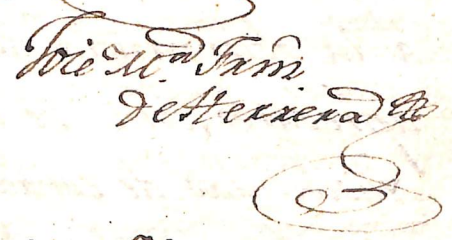 Jose M.a Frañ
de Herrera